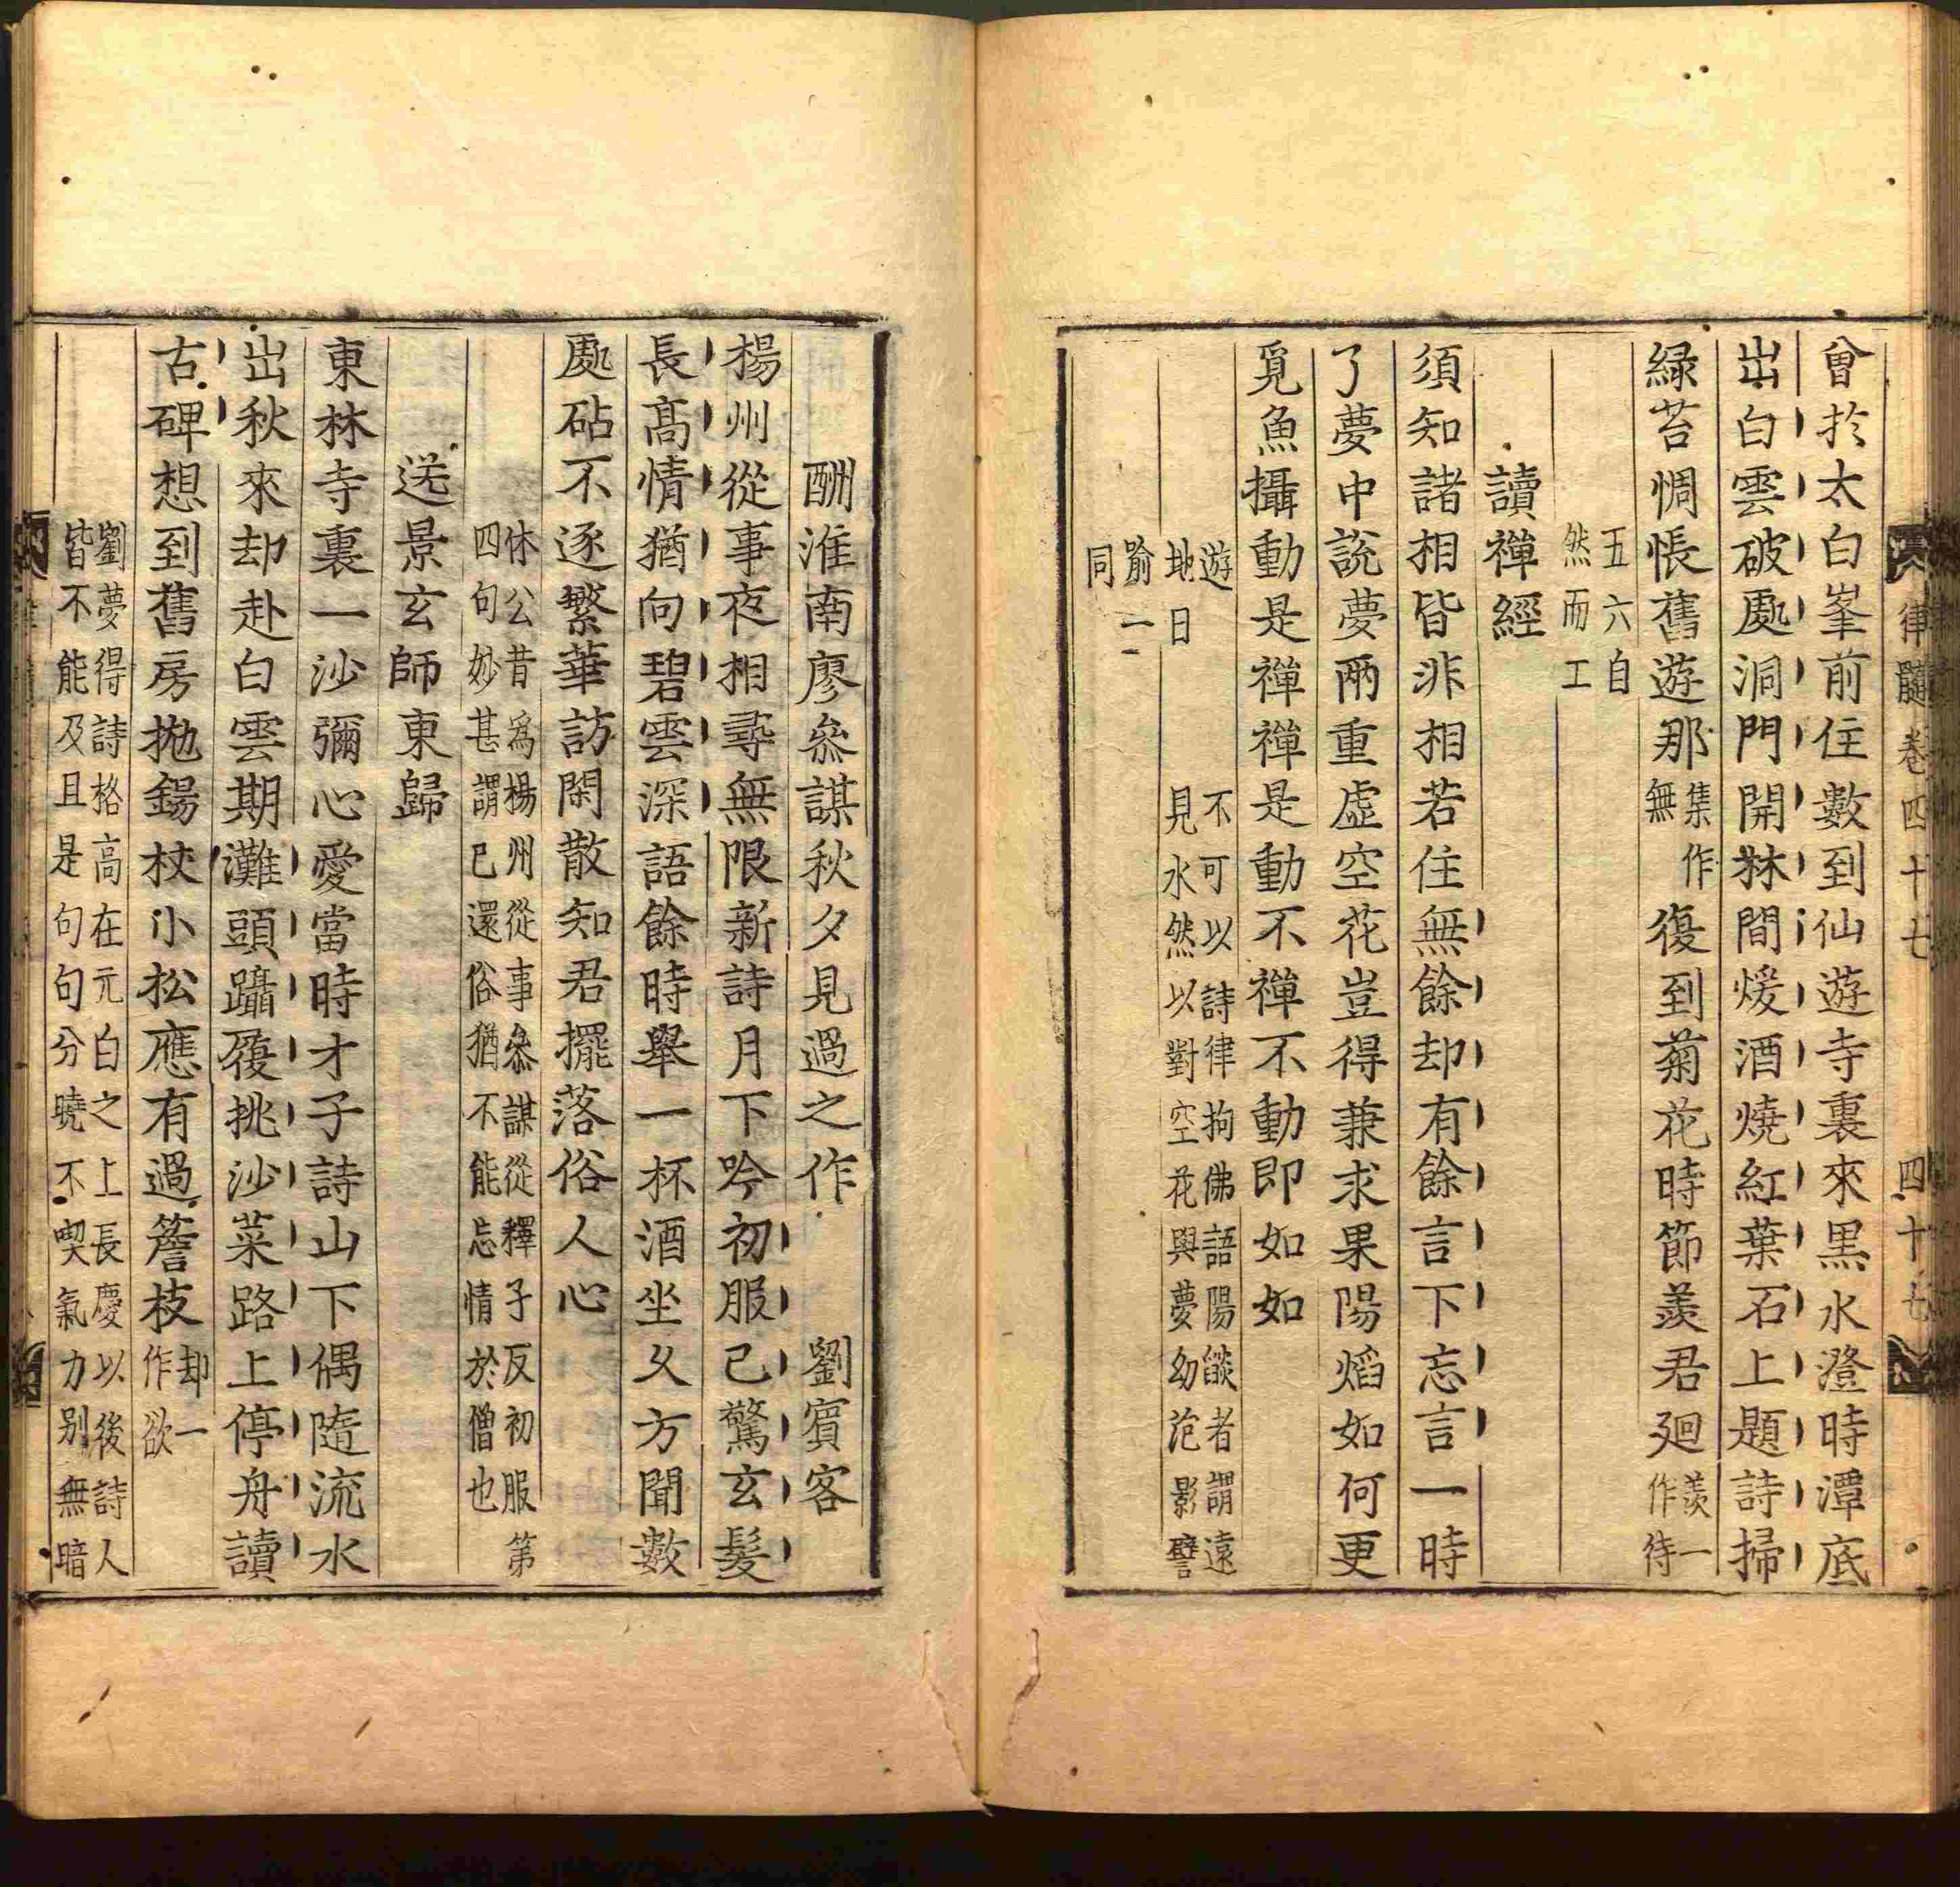 律髓卷四十七 四十七
曾於太白峯前住數到仙遊寺裏來黒水澄時潭底
出白雲破處洞門開林間煖酒燒紅葉石上題詩掃
緑苔惆悵舊遊那集作無復到菊花時節羨君廻羨一作待
五六自
然而工
讀禪經
須知諸相皆非相若住無餘却有餘言下忘言一時
了夢中說夢兩重虛空花豈得兼求果陽熖如何更
覓魚攝動是禪禪是動不禪不動即如如
不可以詩律拘佛語陽燄者謂遠
見水然以對空花與夢幼泡影譬
遊
地日
喻一
同
酬淮南廖叅謀秋夕見過之作 劉賓客
揚州從事夜相尋無限新詩月下吟初服已驚玄髮
長髙情猶向碧雲深語餘時舉一杯酒坐久方聞數
處砧不逐繁華訪閑散知君擺落俗人心
休公昔爲楊州從事叅謀從釋子反初服第
四句妙甚謂已還俗猶不能忘情於僧也
送景玄師東歸
東林寺裏一沙彌心愛當時才子詩山下偶隨流水
出秋來却赴白雲期灘頭躡屐挑沙菜路上停舟讀
古碑想到舊房拋錫杖小松應有過簷枝却一作欲
劉夢得詩格高在元白之上長慶以後詩人
皆不能及且是句句分曉不喫氣力别無暗